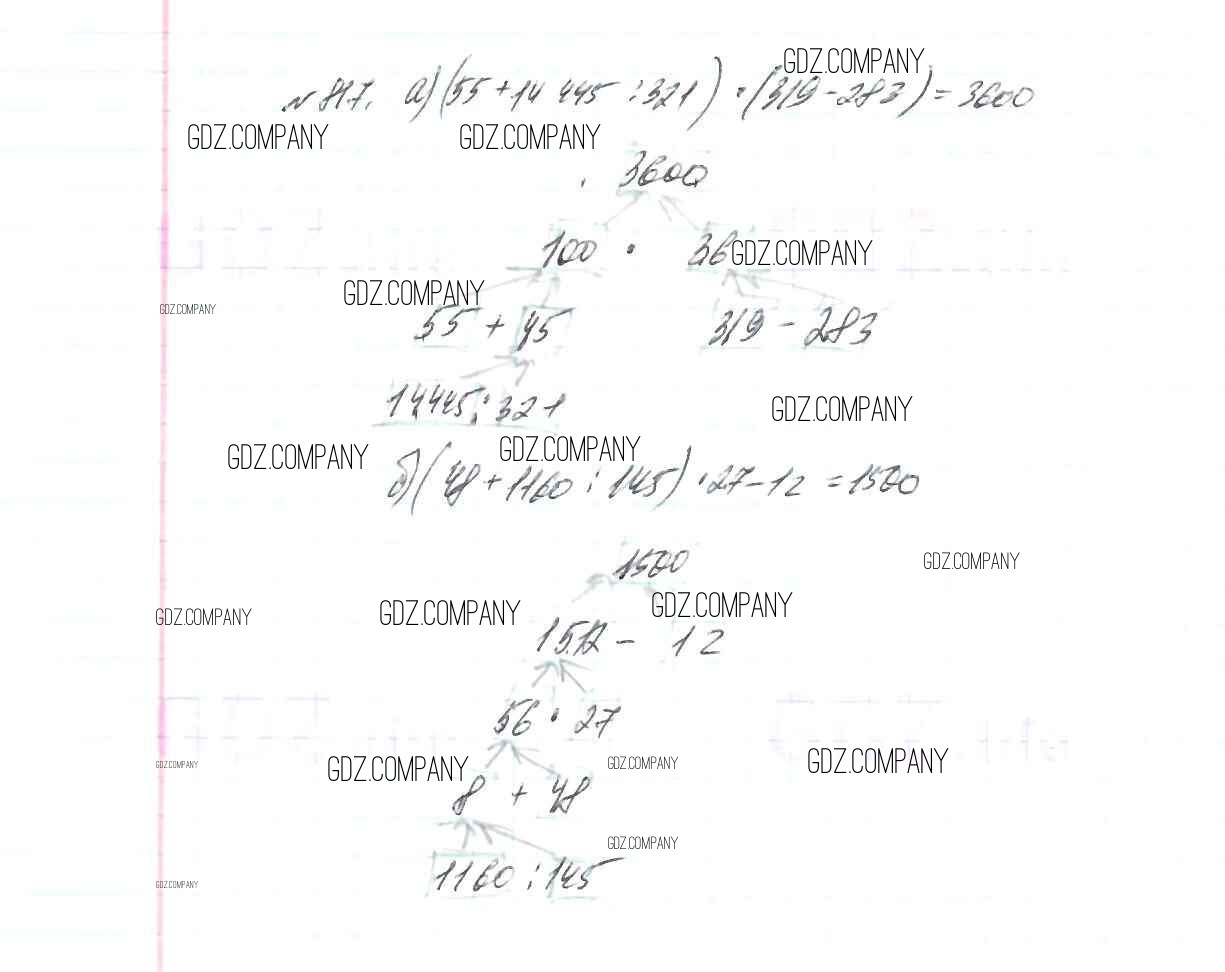 GDZ.COMPANY
№ 817. а) (55 + 14 445 : 321) • (319 - 283) = 3600
GDZ.COMPANY GDZ.COMPANY
3600
100 • 36 GDZ.COMPANY
GDZ.COMPANY
GDZ.COMPANY
55 + 45 319 - 283
14445 : 321 GDZ.COMPANY
GDZ.COMPANY GDZ.COMPANY
б) (48 + 1160 : 145) • 27 - 12 = 1500
1500 GDZ.COMPANY
GDZ.COMPANY GDZ.COMPANY GDZ.COMPANY
1512 - 12
56 • 27
GDZ.COMPANY GDZ.COMPANY GDZ.COMPANY GDZ.COMPANY
8 + 48
GDZ.COMPANY
1160 : 145
GDZ.COMPANY